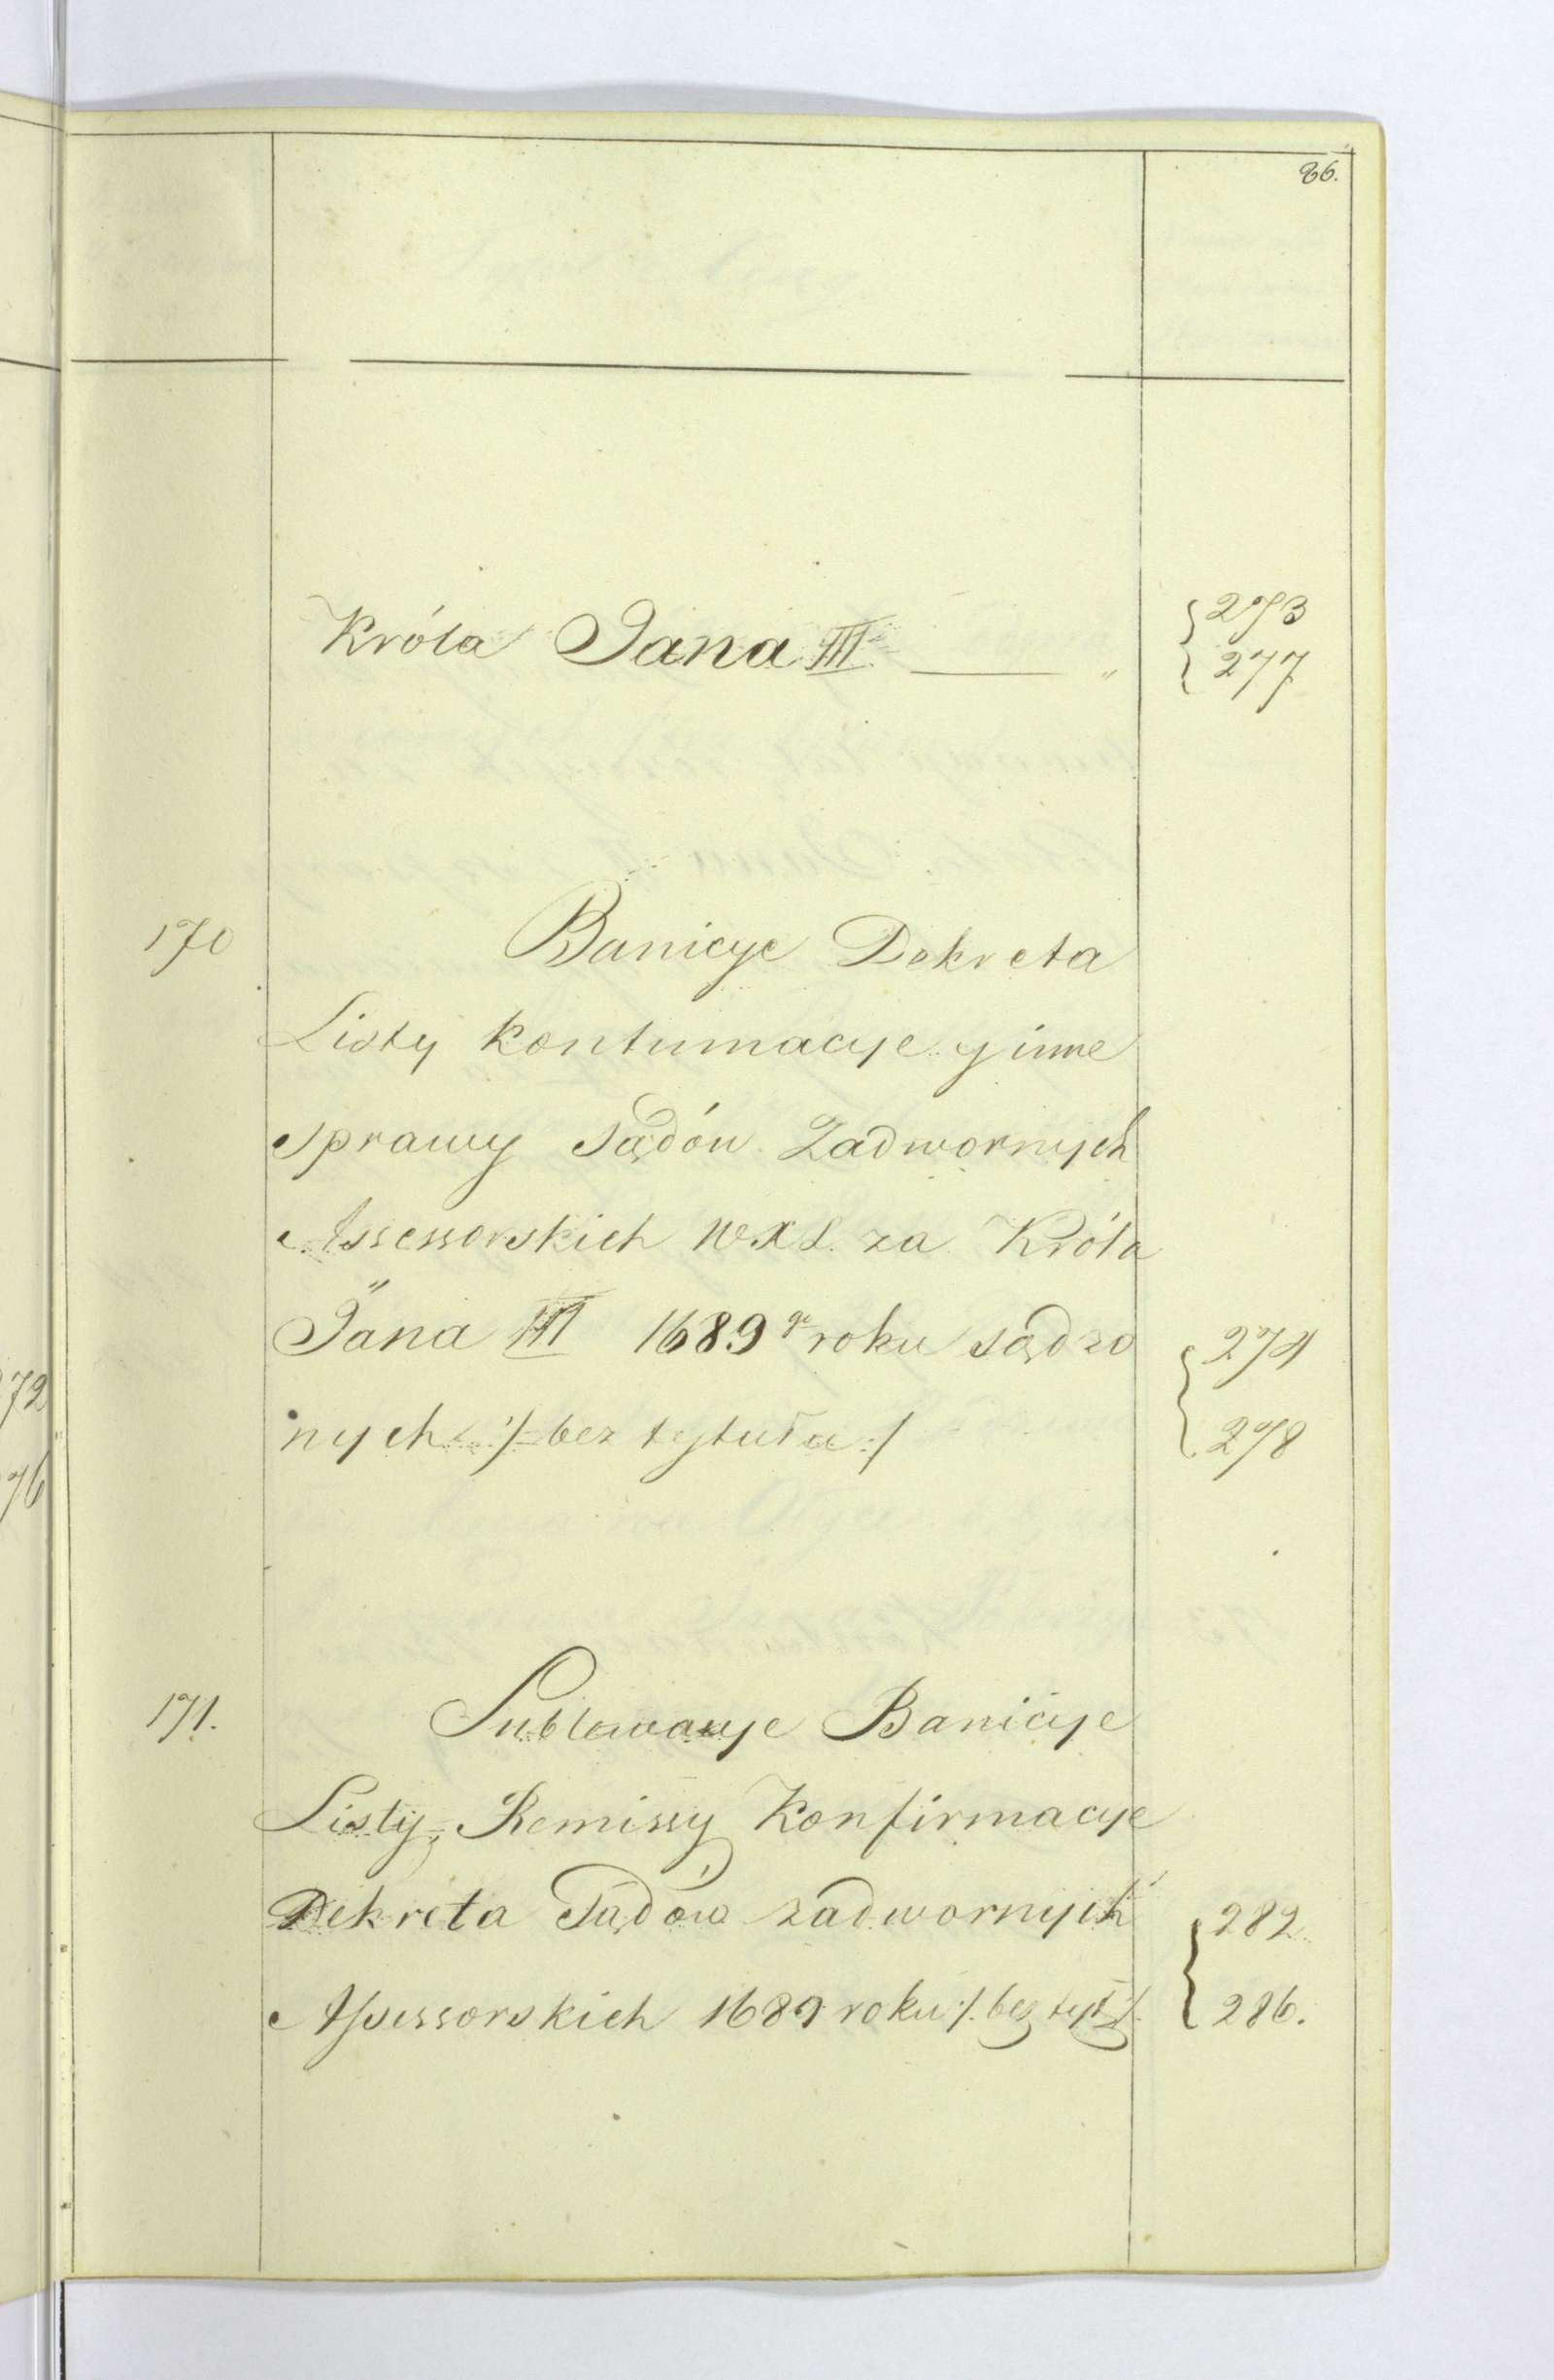 86.
Króla Jana III ——— "
273
277
170 Banicye Dekreta
Listy kontumacye y inne
sprawy sądów Zadwornych
Assessorskich WXL. za Króla
Jana III 1689 go roku sądzo
274
nych :/ bez tytułu :/
278
171. Sublewacye Banicye
Listy, Remissy Konfirmacye
Dekreta Sądów zadwornych
282
Assessorskich 1689 roku /. bez tyt /.
286.
72
76